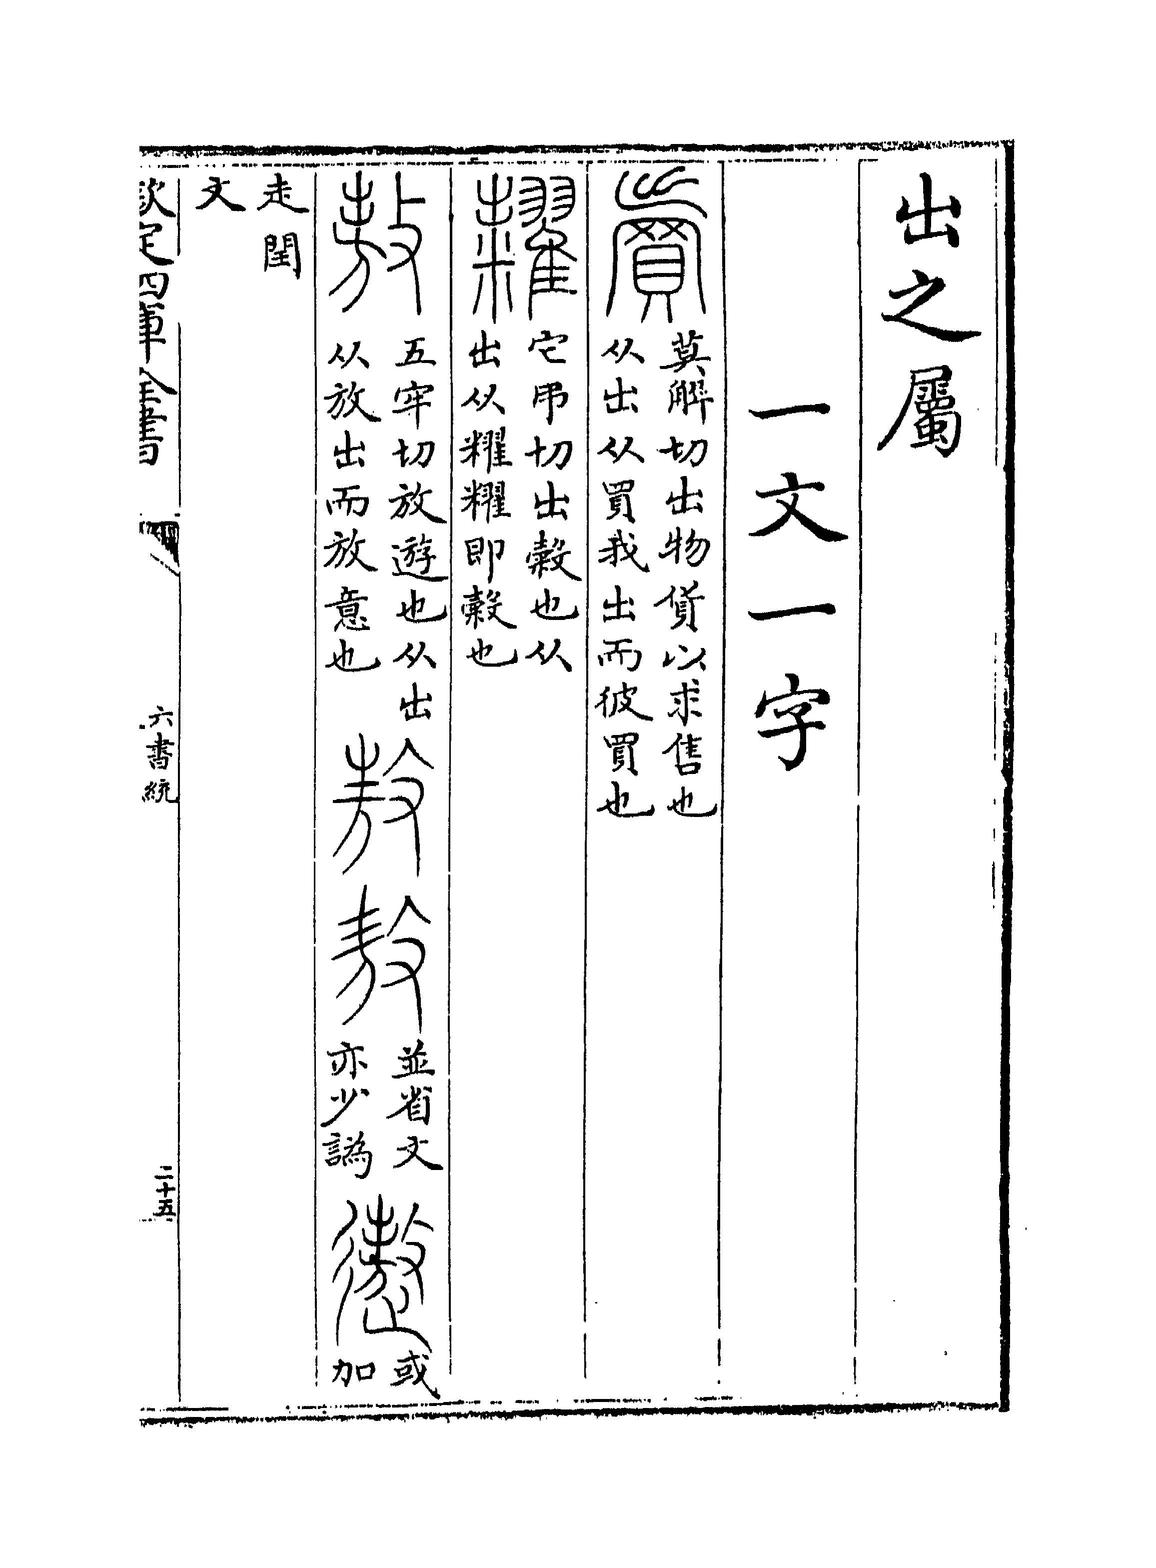 出之屬
一文一字
賣
莫解切出物貨以求售也
从出从買我出而彼買也
糶
它弔切出穀也从
出从䊮䊮即穀也
敖
五牢切放遊也从出
从放出而放意也
敖敖
並省文
亦少譌
遨
或
加
走閏
文
欽定四庫全書
六書統
二十五